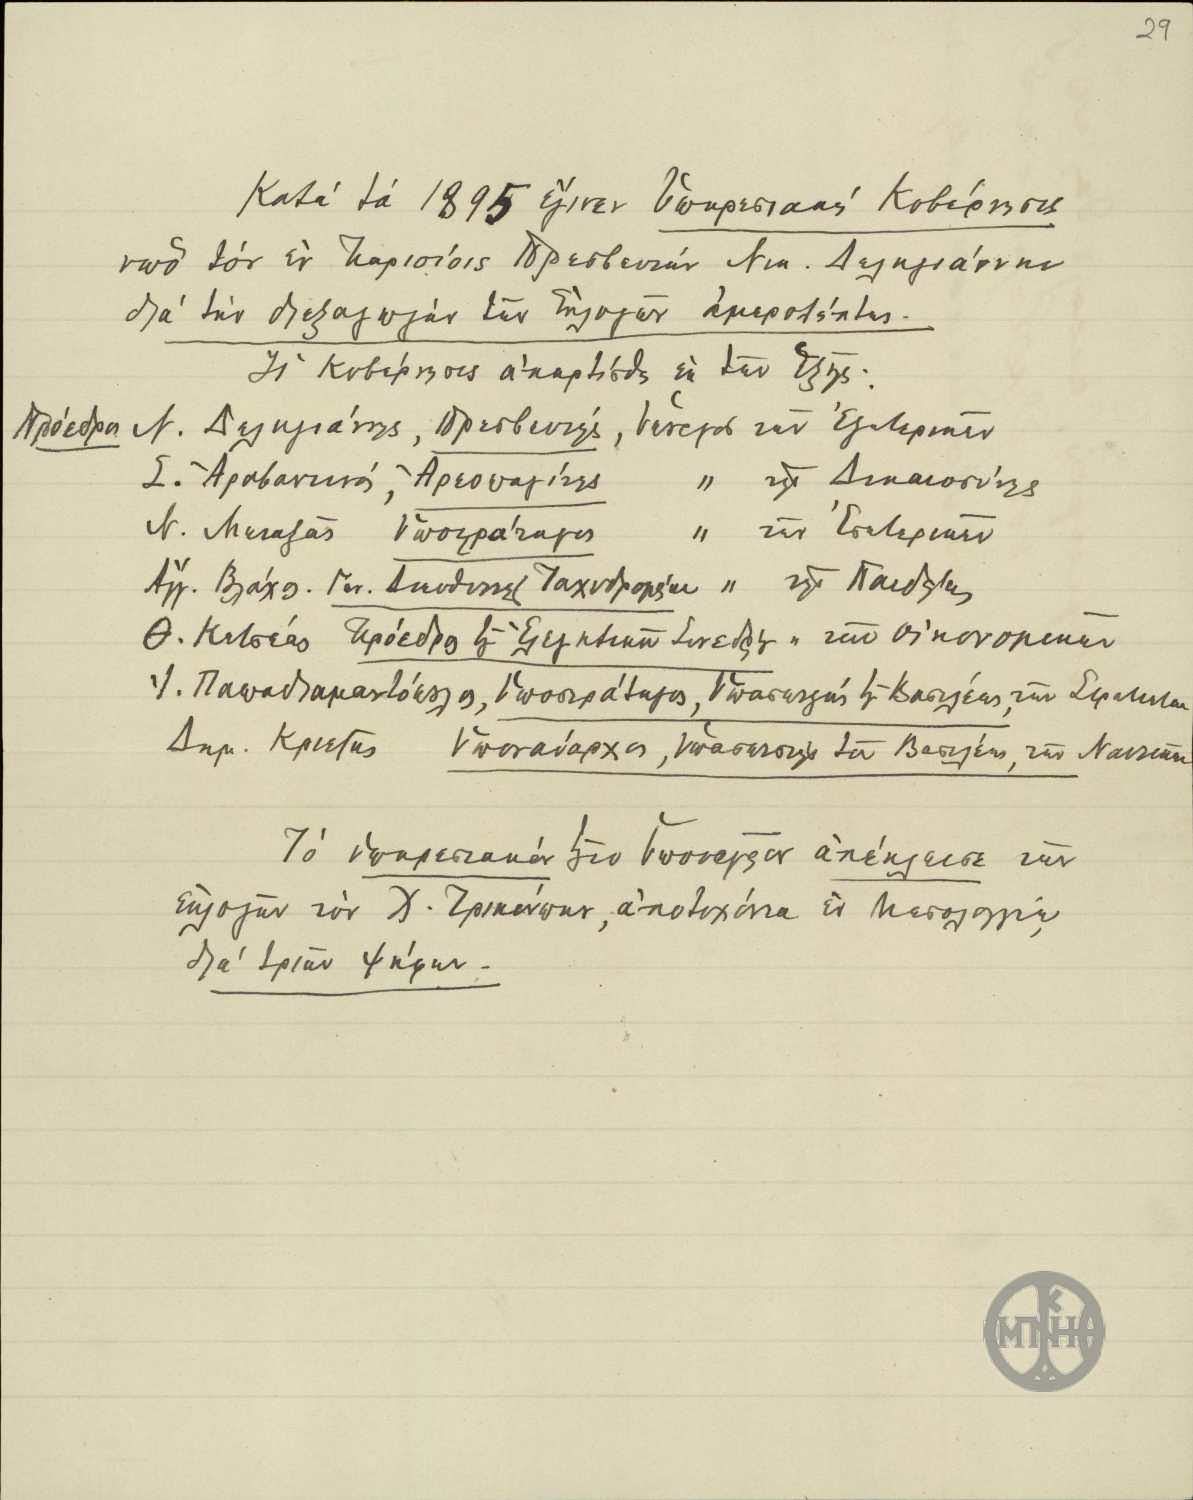 29
Κατά τά 1895 ἔγινεν Ὑπηρεσιακή Κυβέρνησις
υπό τόν ἐν Παρισίοις Πρεσβευτήν Νικ. Δεληγιάννην
διά τήν διεξαγωγήν τῶν Ἐκλογῶν ἀμερολήπτως.
Ἡ Κυβέρνησις ἀπηρτίσθη ἐκ τῶν Ἑξῆς:
Πρόεδρος Ν. Δεληγιάννης, Πρεσβευτής, Ὑπουργός τῶν Ἐξωτερικῶν
Σ. Ἀραβαντινός, Ἀρεοπαγίτης " τῆς Δικαιοσύνης
Ν. Μεταξᾶς Ὑποστράτηγος " τῶν Ἐσωτερικῶν
Ἄγγ. Βλάχος. Γεν. Διευθυντής Ταχυδρομείων " τῆς Παιδείας
Θ. Κετσέας Πρόεδρος τοῦ Ἐλεγκτικοῦ Συνεδρίου " τῶν Οἰκονομικῶν
Ἰ. Παπαδιαμαντόπουλος, Ὑποστράτηγος, Ὑπασπιστής τοῦ Βασιλέως, τῶν Στρατιωτικῶν
Δημ. Κριεζῆς Ὑποναύαρχος, Ὑπασπιστής τοῦ Βασιλέως, τῶν Ναυτικῶν
Τό Ὑπηρεσιακόν τοῦτο Ὑπουργεῖον ἀπέκλεισε τῶν
Ἐκλογῶν τόν Χ. Τρικούπην, ἀποτυχόντα ἐν Μεσολογγίῳ
διά τριῶν ψήφων.
ΜΠΚΗΘ